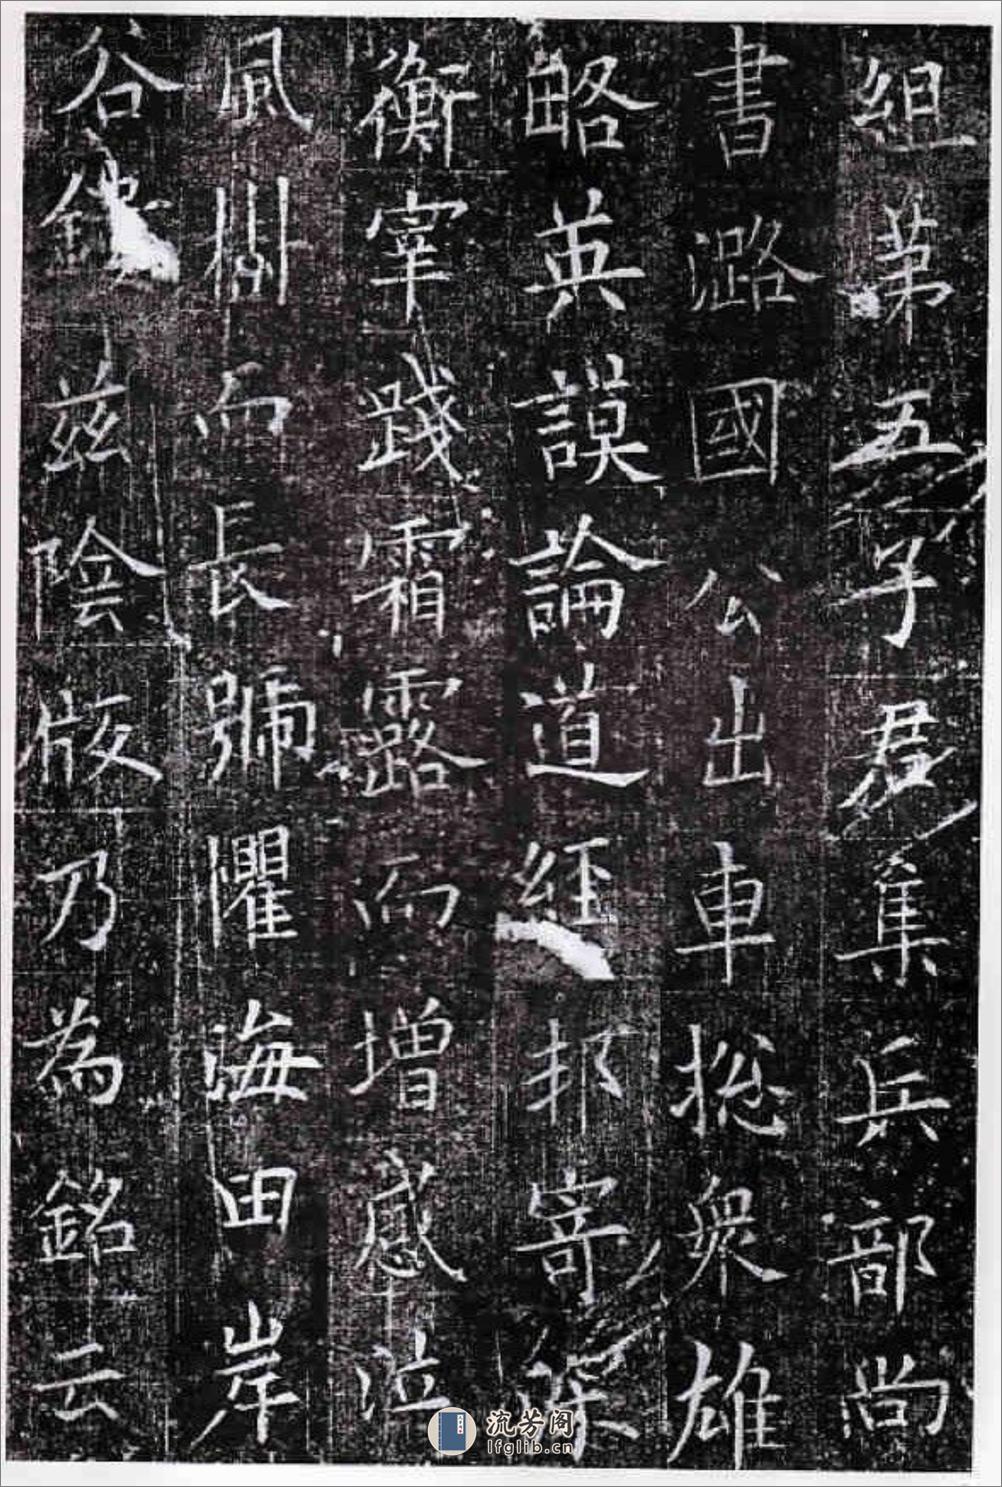 組第五子君集兵部尚
書潞國公出車揔衆雄
略英謨論道經邦寄深
衡宰踐霜露而增感泣
風樹而長號懼海田岸
谷鏤兹陰版乃為銘云
流芳阁
lfglib.cn